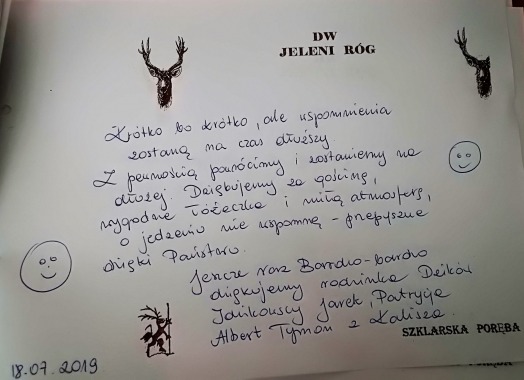 DW
JELENI RÓG
Krótko bo krótko, ale wspomnienia
zostaną na czas dłuższy
Z pewnością powrócimy i zostaniemy na
dłużej. Dziękujemy za gościnę,
wygodne łóżeczka i miłą atmosferę,
o jedzeniu nie wspomnę - przepyszne
dzięki Państwu.
Jeszcze raz Bardzo-bardzo
dziękujemy rodzinka
Jarek, Patrycja
Albert Tymon z Kalisza.
SZKLARSKA PORĘBA
18.07.2019